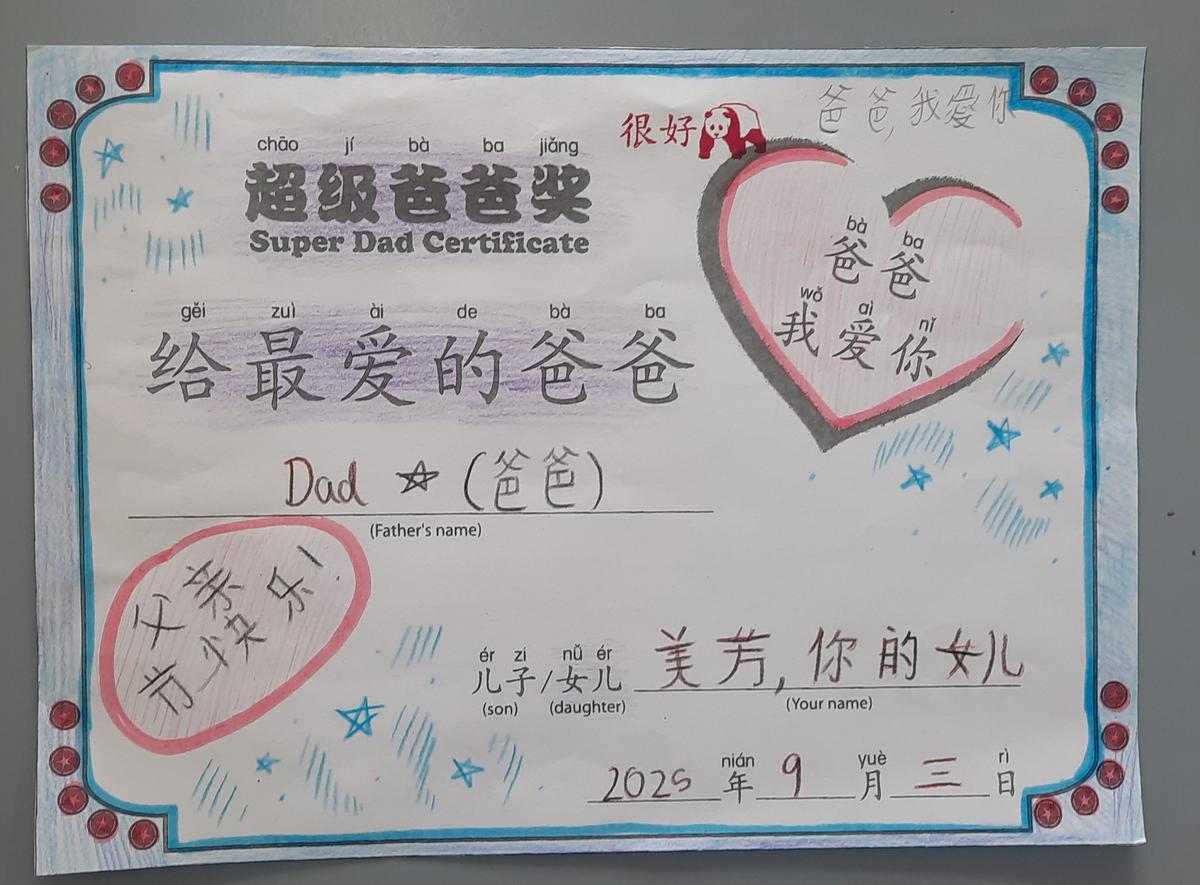 很好
爸爸,我愛你
chāo jí bà ba jiǎng
超级爸爸奖
Super Dad Certificate
bà ba
爸爸
wǒ ài nǐ
我爱你
gěi zuì ài de bà ba
给最爱的爸爸
Dad (爸爸)
(Father's name)
父亲
节快乐!
ér zi nǚ ér
儿子/女儿 美芳,你的女儿
(son) (daughter) (Your name)
nián yuè rì
2025年9月三日